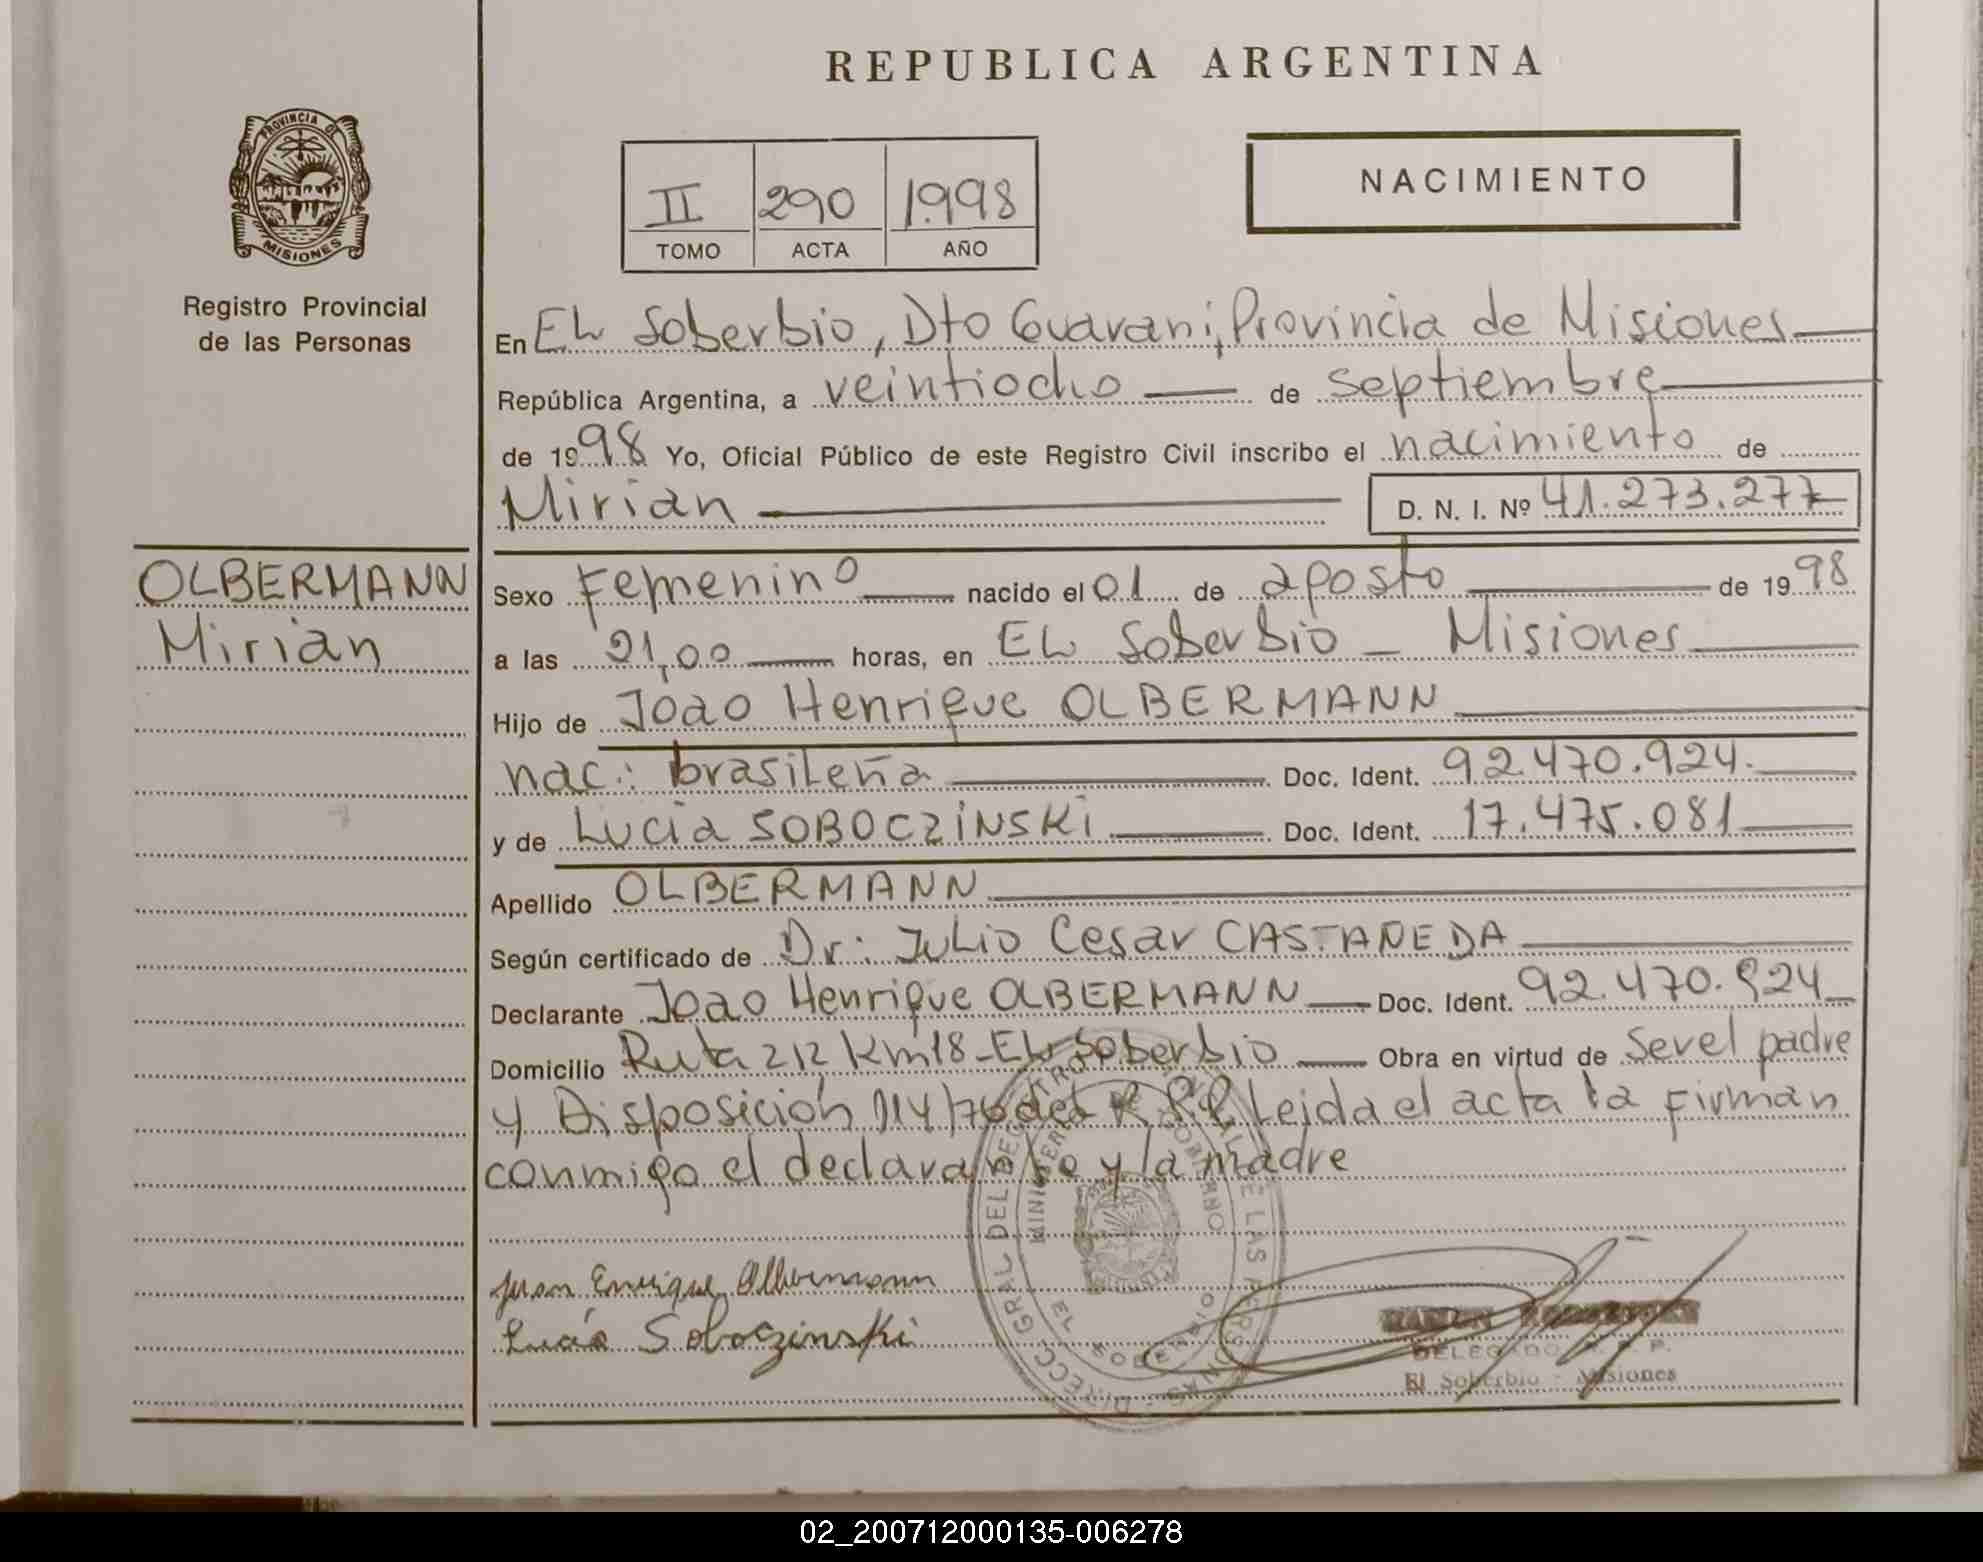 REPUBLICA ARGENTINA
PROVINCIA DE
MISIONES
Registro Provincial
de las Personas
II 290 1998
TOMO ACTA AÑO
NACIMIENTO
En EL Soberbio, Dto Guarani, Provincia de Misiones
República Argentina, a veintiocho de septiembre
de 1998 Yo, Oficial Público de este Registro Civil inscribo el nacimiento de
Mirian D. N. I. Nº 41.273.277
OLBERMANN
Mirian
Sexo Femenino nacido el 01 de agosto de 1998
a las 21,00 horas, en EL Soberbio - Misiones
Hijo de Joao Henrique OLBERMANN
nac.: brasileña Doc. Ident. 92.470.924.
y de Lucia SOBOCZINSKi Doc. Ident. 17.475.081
Apellido OLBERMANN
Según certificado de Dr: Julio Cesar CASTAÑEDA
Declarante Joao Henrique OLBERMANN Doc. Ident. 92.470.924
Domicilio Ruta 212 Km18-EL Soberbio Obra en virtud de Ser el padre
y Disposición 114/76 del R.P.P. Leida el acta la Firman
conmigo el declarante y la madre
Juan Enrique Olbermann
Lucia Soboczinski
DELEGADO R. P. P.
El Soberbio - Misiones
02_200712000135-006278